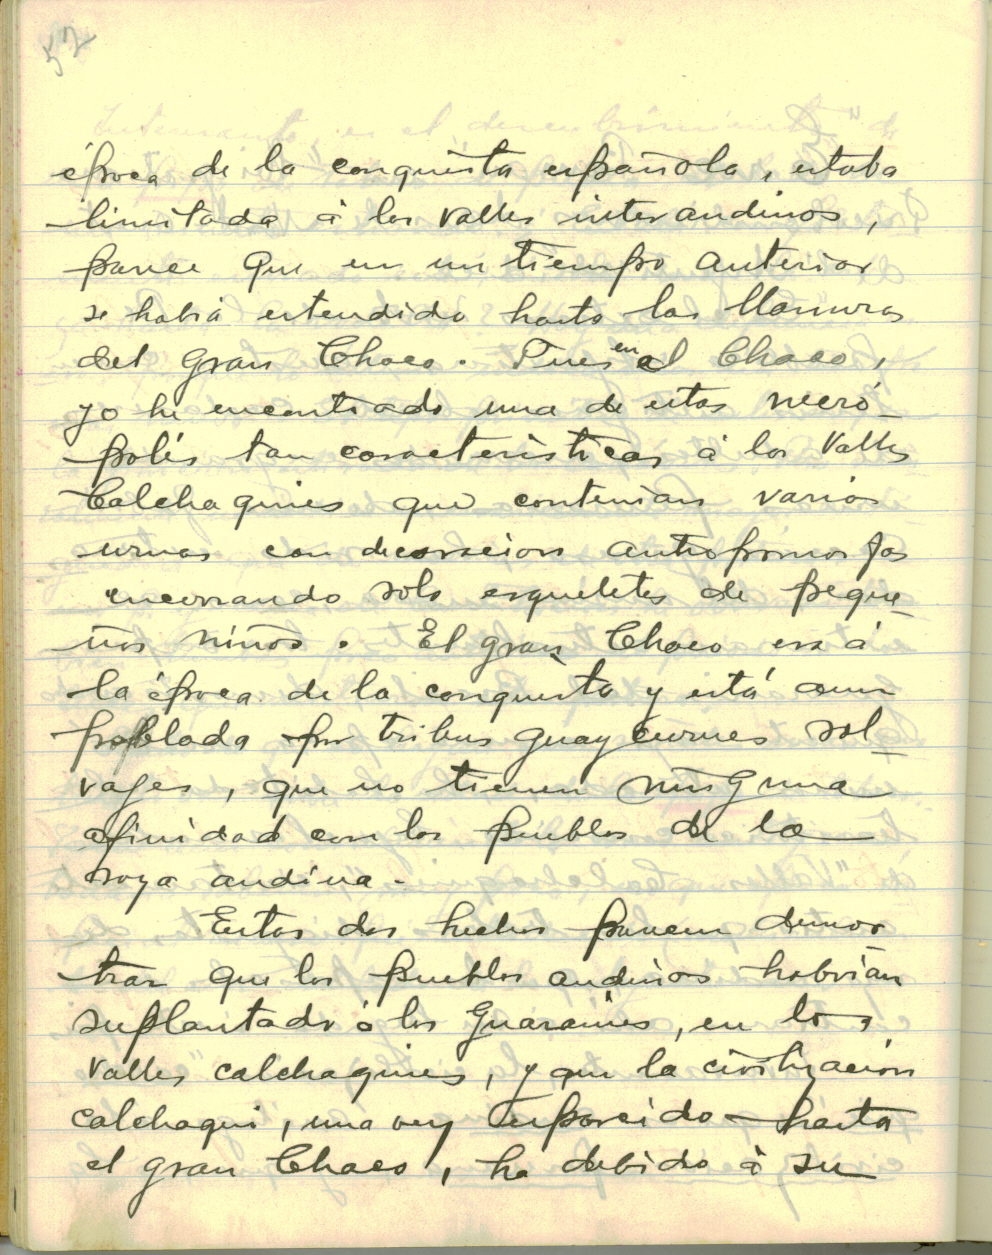 52
época de la conquista española, estaba
limitada á los valles interandinos,
parece que en un tiempo anterior
se habia estendido hasta las llanuras
del gran Chaco. Pues en el Chaco,
yo he encontrado una de estas necró-
polis tan caracteristicas á los valles
Calchaquies que contenian varias
urnas con decoracion antropomorfas
encerrando solo esqueletes de peque-
ños niños. El gran Chaco era á
la época de la conquista y está aun
poblada por tribus guaycurues sal-
vages, que no tienen ninguna
afinidad con los pueblos de la
roya andina.
Estos dos hechos parecen demos
trar que los pueblos andinos habrian
suplantado á los Guaranies, en los
valles calchaquies, y que la civilizacion
calchaqui, una vez esparcida hasta
el gran Chaco, ha debido á su